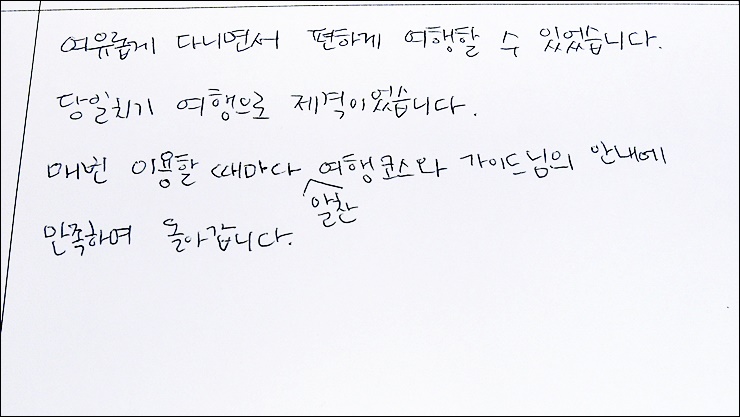 여유롭게 다니면서 편하게 여행할 수 있었습니다.
당일치기 여행으로 제격이었습니다.
매번 이용할 때마다 여행코스와 가이드님의 안내에
알찬
만족하며 돌아갑니다.